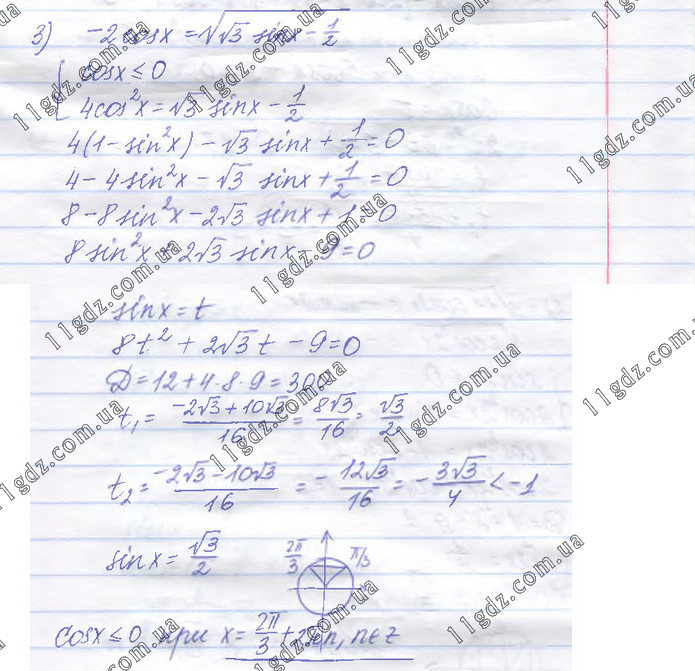 3) -2cosx = √(√3 sinx - 1/2)
{ cosx ≤ 0
4cos²x = √3 sinx - 1/2
4(1 - sin²x) - √3 sinx + 1/2 = 0
4 - 4sin²x - √3 sinx + 1/2 = 0
8 - 8sin²x - 2√3 sinx + 1 = 0
8sin²x + 2√3 sinx - 9 = 0
sinx = t
8t² + 2√3 t - 9 = 0
D = 12 + 4·8·9 = 300
t₁ = (-2√3 + 10√3)/16 = 8√3/16 = √3/2
t₂ = (-2√3 - 10√3)/16 = -12√3/16 = -3√3/4 < -1
sinx = √3/2
2π/3 π/3
cosx ≤ 0 при x = 2π/3 + 2πn, n∈z
11gdz.com.ua